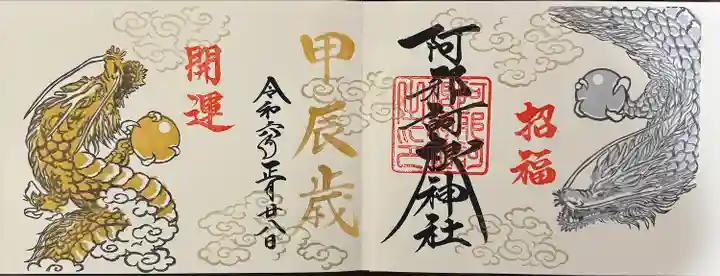 招福
阿邪訶根神社
甲辰歳
令和六年正月廿八日
開運